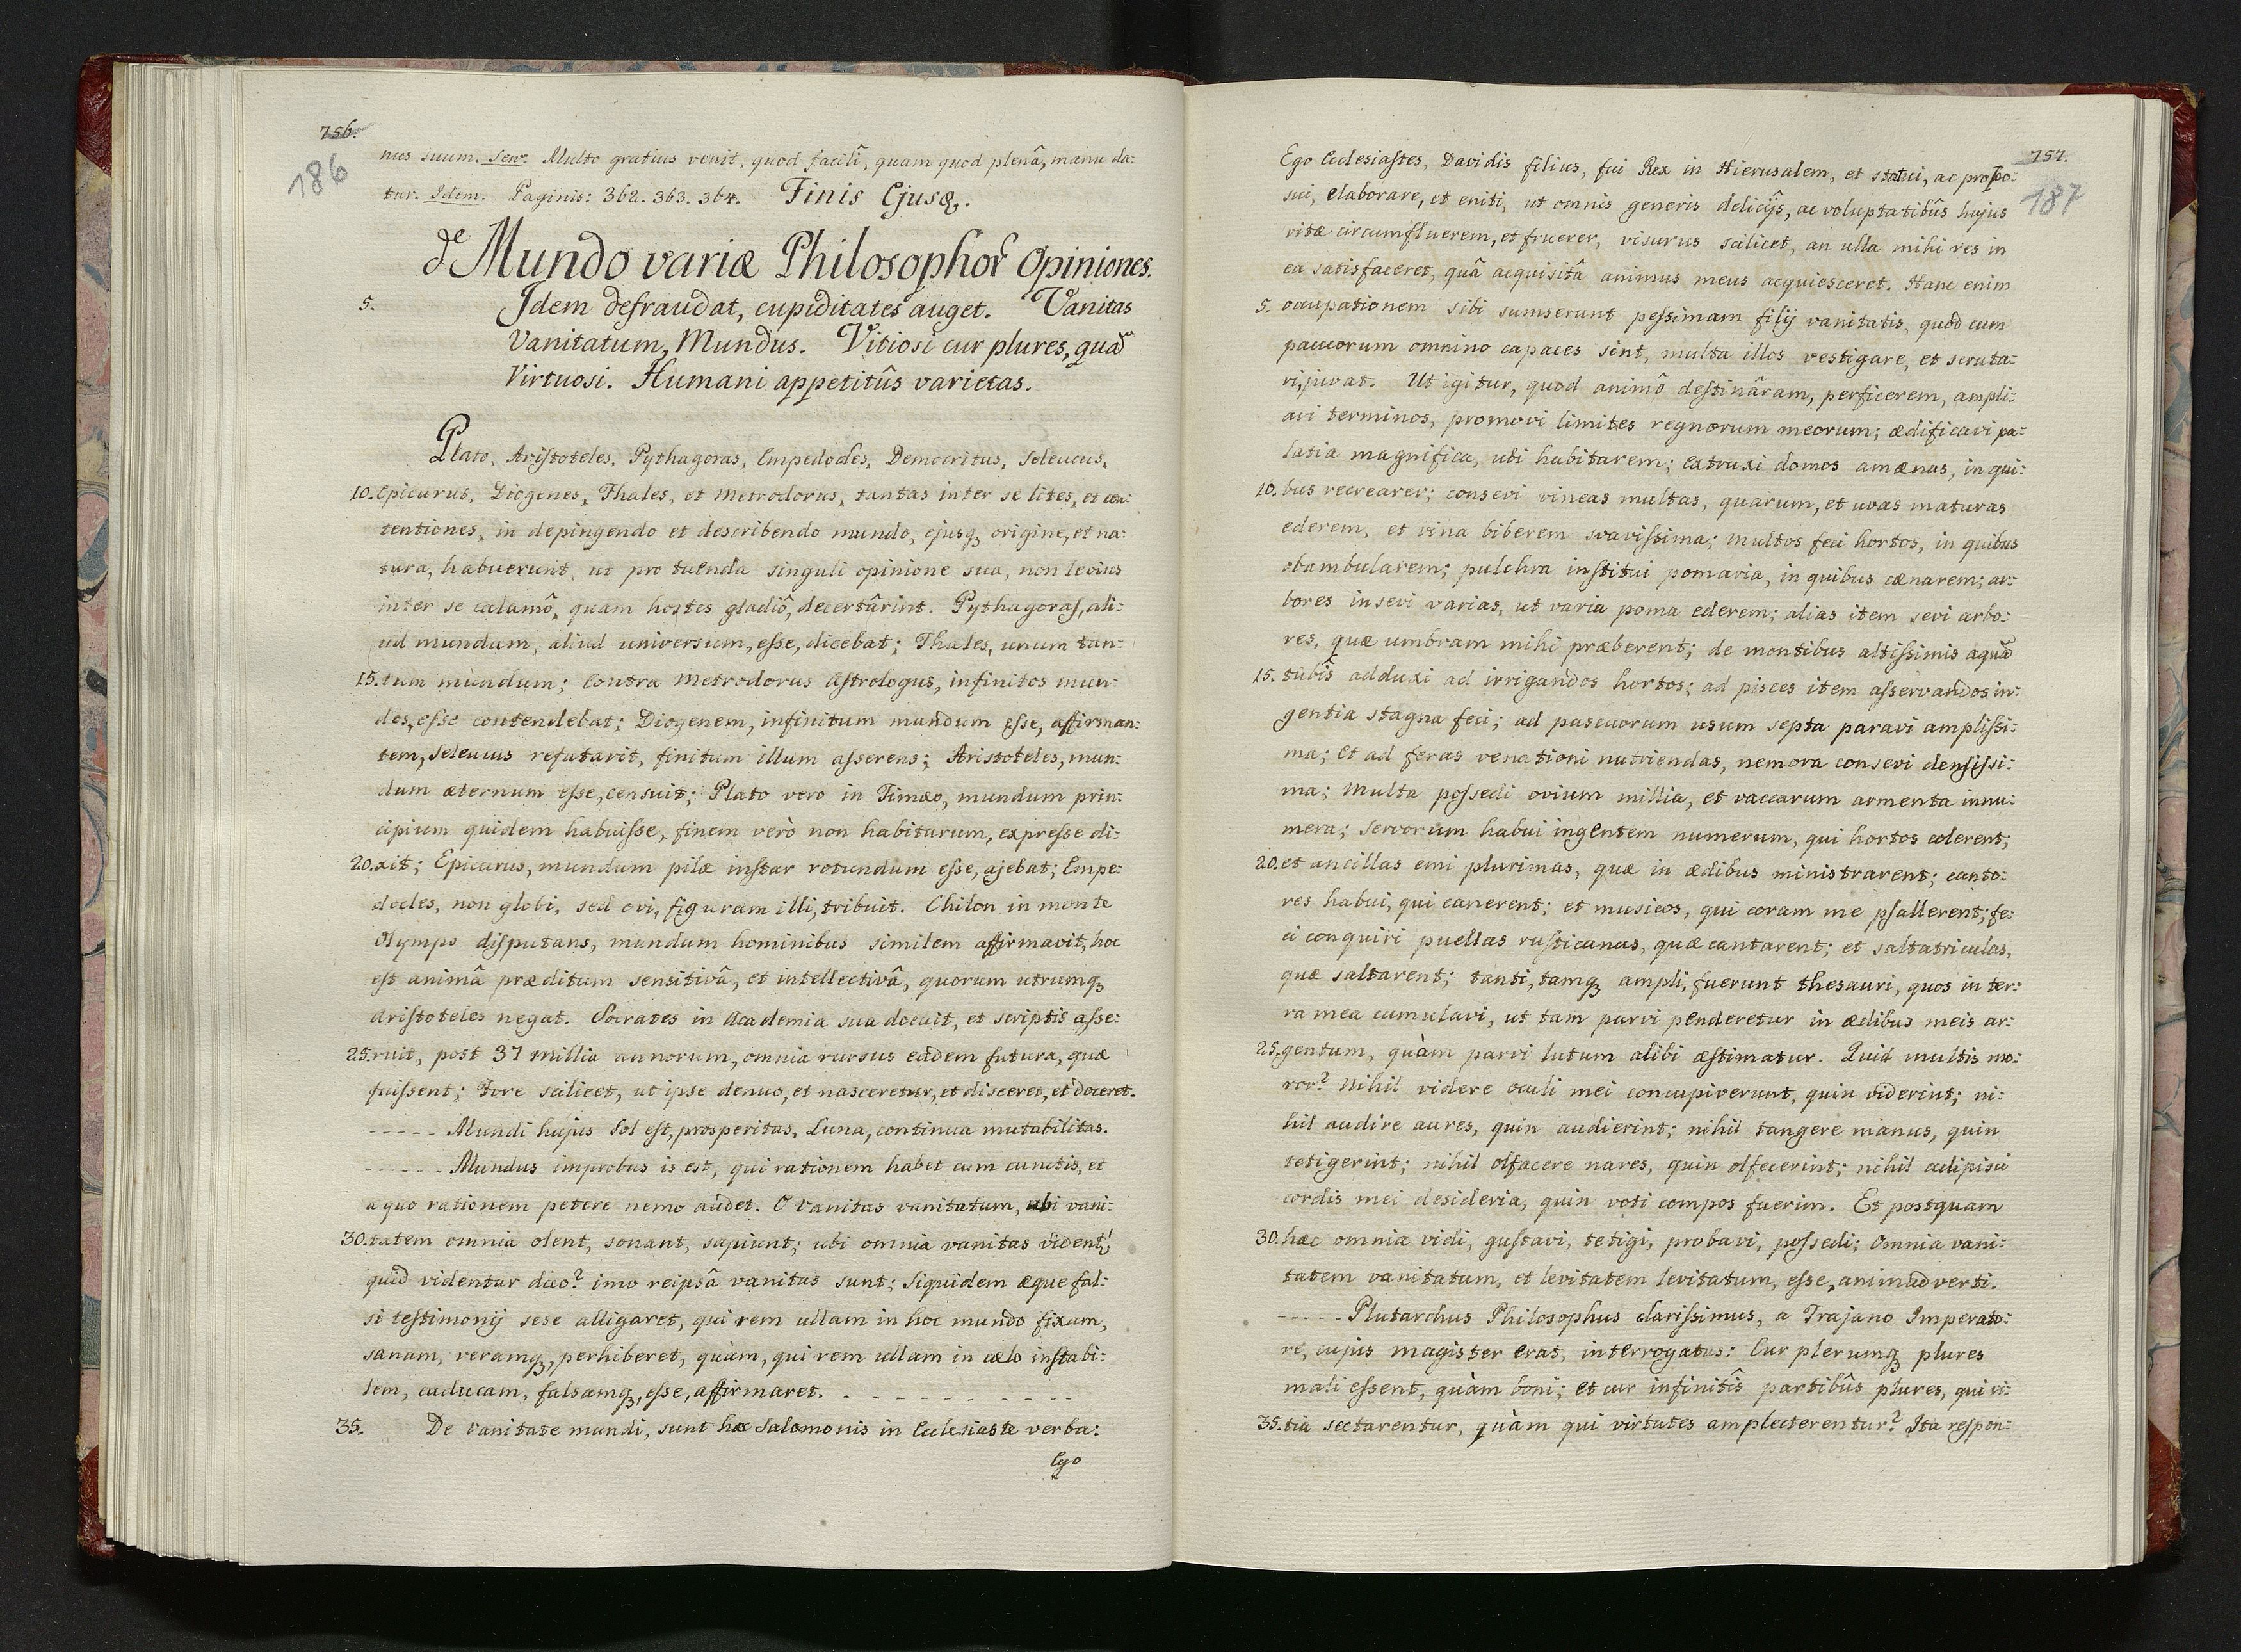 756.
186
nus suum. Sen. Multo gratius venit, quod facilî, quam quod plenâ, manu da:
tur. Idem. Paginis: 362. 363. 364. Finis Ejusq.
de Mundo variæ Philosophor Opiniones.
5. Idem defraudat, cupiditates auget. Vanitas
Vanitatum, Mundus. Vitiosi cur plures, qua
Virtuosi. Humani appetitûs varietas.
Plato, Aristoteles, Pythagoras, Empedocles, Democritus, Seleucus,
10. Epicurus, Diogenes, Thales, et Metrodorus, tantas inter se lites, et con:
tentiones, in depingendo et describendo mundo, ejusq, origine, et na:
tura, habuerunt, ut pro tuenda singuli opinione sua, non levius
inter se calamô, quam hostes gladiô, decertârint. Pythagoras, ali:
ud mundum, aliud universum, esse, dicebat; Thales, unum tan:
15. tum mundum; Contra Metrodorus Astrologus, infinitos mun:
dos, esse contendebat; Diogenem, infinitum mundum esse, affirman:
tem, Seleucus refutavit, finitum illum asserens; Aristoteles, mun:
dum æternum esse, censuit; Plato vero in Timæo, mundum prin:
cipium quidem habuisse, finem verò non habiturum, expresse di:
20. xit; Epicurus, mundum pilæ instar rotundum esse, ajebat; Empe:
docles, non globi, sed ovi, figuram illi, tribuit. Chilon in monte
Olympo disputans, mundum hominibus similem affirmavit, hoc
est animâ præditum sensitivâ, et intellectivâ, quorum utrumq
Aristoteles negat. Socrates in Academia sua docuit, et scriptis asse:
25. ruit, post 37 millia annorum, omnia rursus eadem futura, quæ
fuissent; Fore scilicet, ut ipse denuo, et nasceretur, et disceret, et doceret.
----- Mundi hujus Sol est, prosperitas, Luna, continua mutabilitas.
------ Mundus improbus is est, qui rationem habet cum cunctis, et
a quo rationem petere nemo audet. O vanitas vanitatum, ubi vani:
30. tatem omnia olent, sonant, sapiunt; ubi omnia vanitas vident;
quid videntur dico? imo reipsâ vanitas sunt; Siquidem æque fal:
si testimonij sese alligaret, qui rem ullam in hoc mundo fixam,
sanam, veramq, perhiberet, quàm, qui rem ullam in cælo instabi:
lem, caducam, falsamq, esse, affirmaret. - - - - - - - - -
35. De vanitate mundi, sunt hæc Salomonis in Ecclesiaste verba:
Ego
757.
187
Ego Ecclesiastes, Davidis filius, fui Rex in Hierusalem, et statui, ac propo:
sui, elaborare, et eniti, ut omnis generis delicijs, ac voluptatibûs hujus
vitæ circumfluerem, et fruerer, visurus scilicet, an ulla mihi res in
ea satisfaceret, quâ acquisitâ animus meus acquiesceret. Hanc enim
5. occupationem sibi sumserunt pessimam filij vanitatis, quòd cum
paucorum omnino capaces sint, multa illos vestigare, et scruta:
ri, juvat. Ut igitur, quod animô destinâram, perficerem, ampli:
avi terminos, promovi limites regnorum meorum; ædificavi pa:
latia magnifica, ubi habitarem; extruxi domos amænas, in qui:
10. bus recrearer; consevi vineas multas, quarum, et uvas maturas
ederem, et vina biberem svavissima; multos feci hortos, in quibus
obambularem; pulchra institui pomaria, in quibus cænarem; ar:
bores insevi varias, ut varia poma ederem; alias item sevi arbo:
res, quæ umbram mihi præberent; de montibus altissimis aqua
15. tubîs adduxi ad irrigandos hortos; ad pisces item asservandos in:
gentia stagna feci; ad pascuorum usum septa paravi amplissi:
ma; et ad feras venationi nutriendas, nemora consevi densissi:
ma; Multa possedi ovium millia, et vaccarum armenta innu:
mera; servorum habui ingentem numerum, qui hortos colerent;
20. et ancillas emi plurimas, quæ in ædibus ministrarent; canto:
res habui, qui canerent; et musicos, qui coram me psallerent; fe:
ci conquiri puellas rusticanas, quæ cantarent; et saltatriculas,
quæ saltarent; tanti, tamq ampli, fuerunt thesauri, quos in ter:
ra mea cumulavi, ut tam parvi penderetur in ædibus meis ar:
25. gentum, quàm parvi lutum alibi æstimatur. Quid multis mo:
ror? Nihil videre oculi mei concupiverunt, quin viderint; ni:
hil audire aures, quin audierint; nihil tangere manus, quin
tetigerint; nihil olfacere nares, quin olfecerint; nihil adipisci
cordis mei desideria, quin voti compos fuerim. Et postquam
30. hæc omnia vidi, gustavi, tetigi, probavi, possedi; Omnia vani:
tatem vanitatum, et levitatem levitatum, esse, animadverti.
----- Plutarchus Philosophus clarissimus, a Trajano Imperato:
re, cujus magister erat, interrogatus: Cur plerumq plures
mali essent, quàm boni; et cur infinitîs partibûs plures, qui vi:
35. tia sectarentur, quàm qui virtutes amplecterentur? Ita respon: